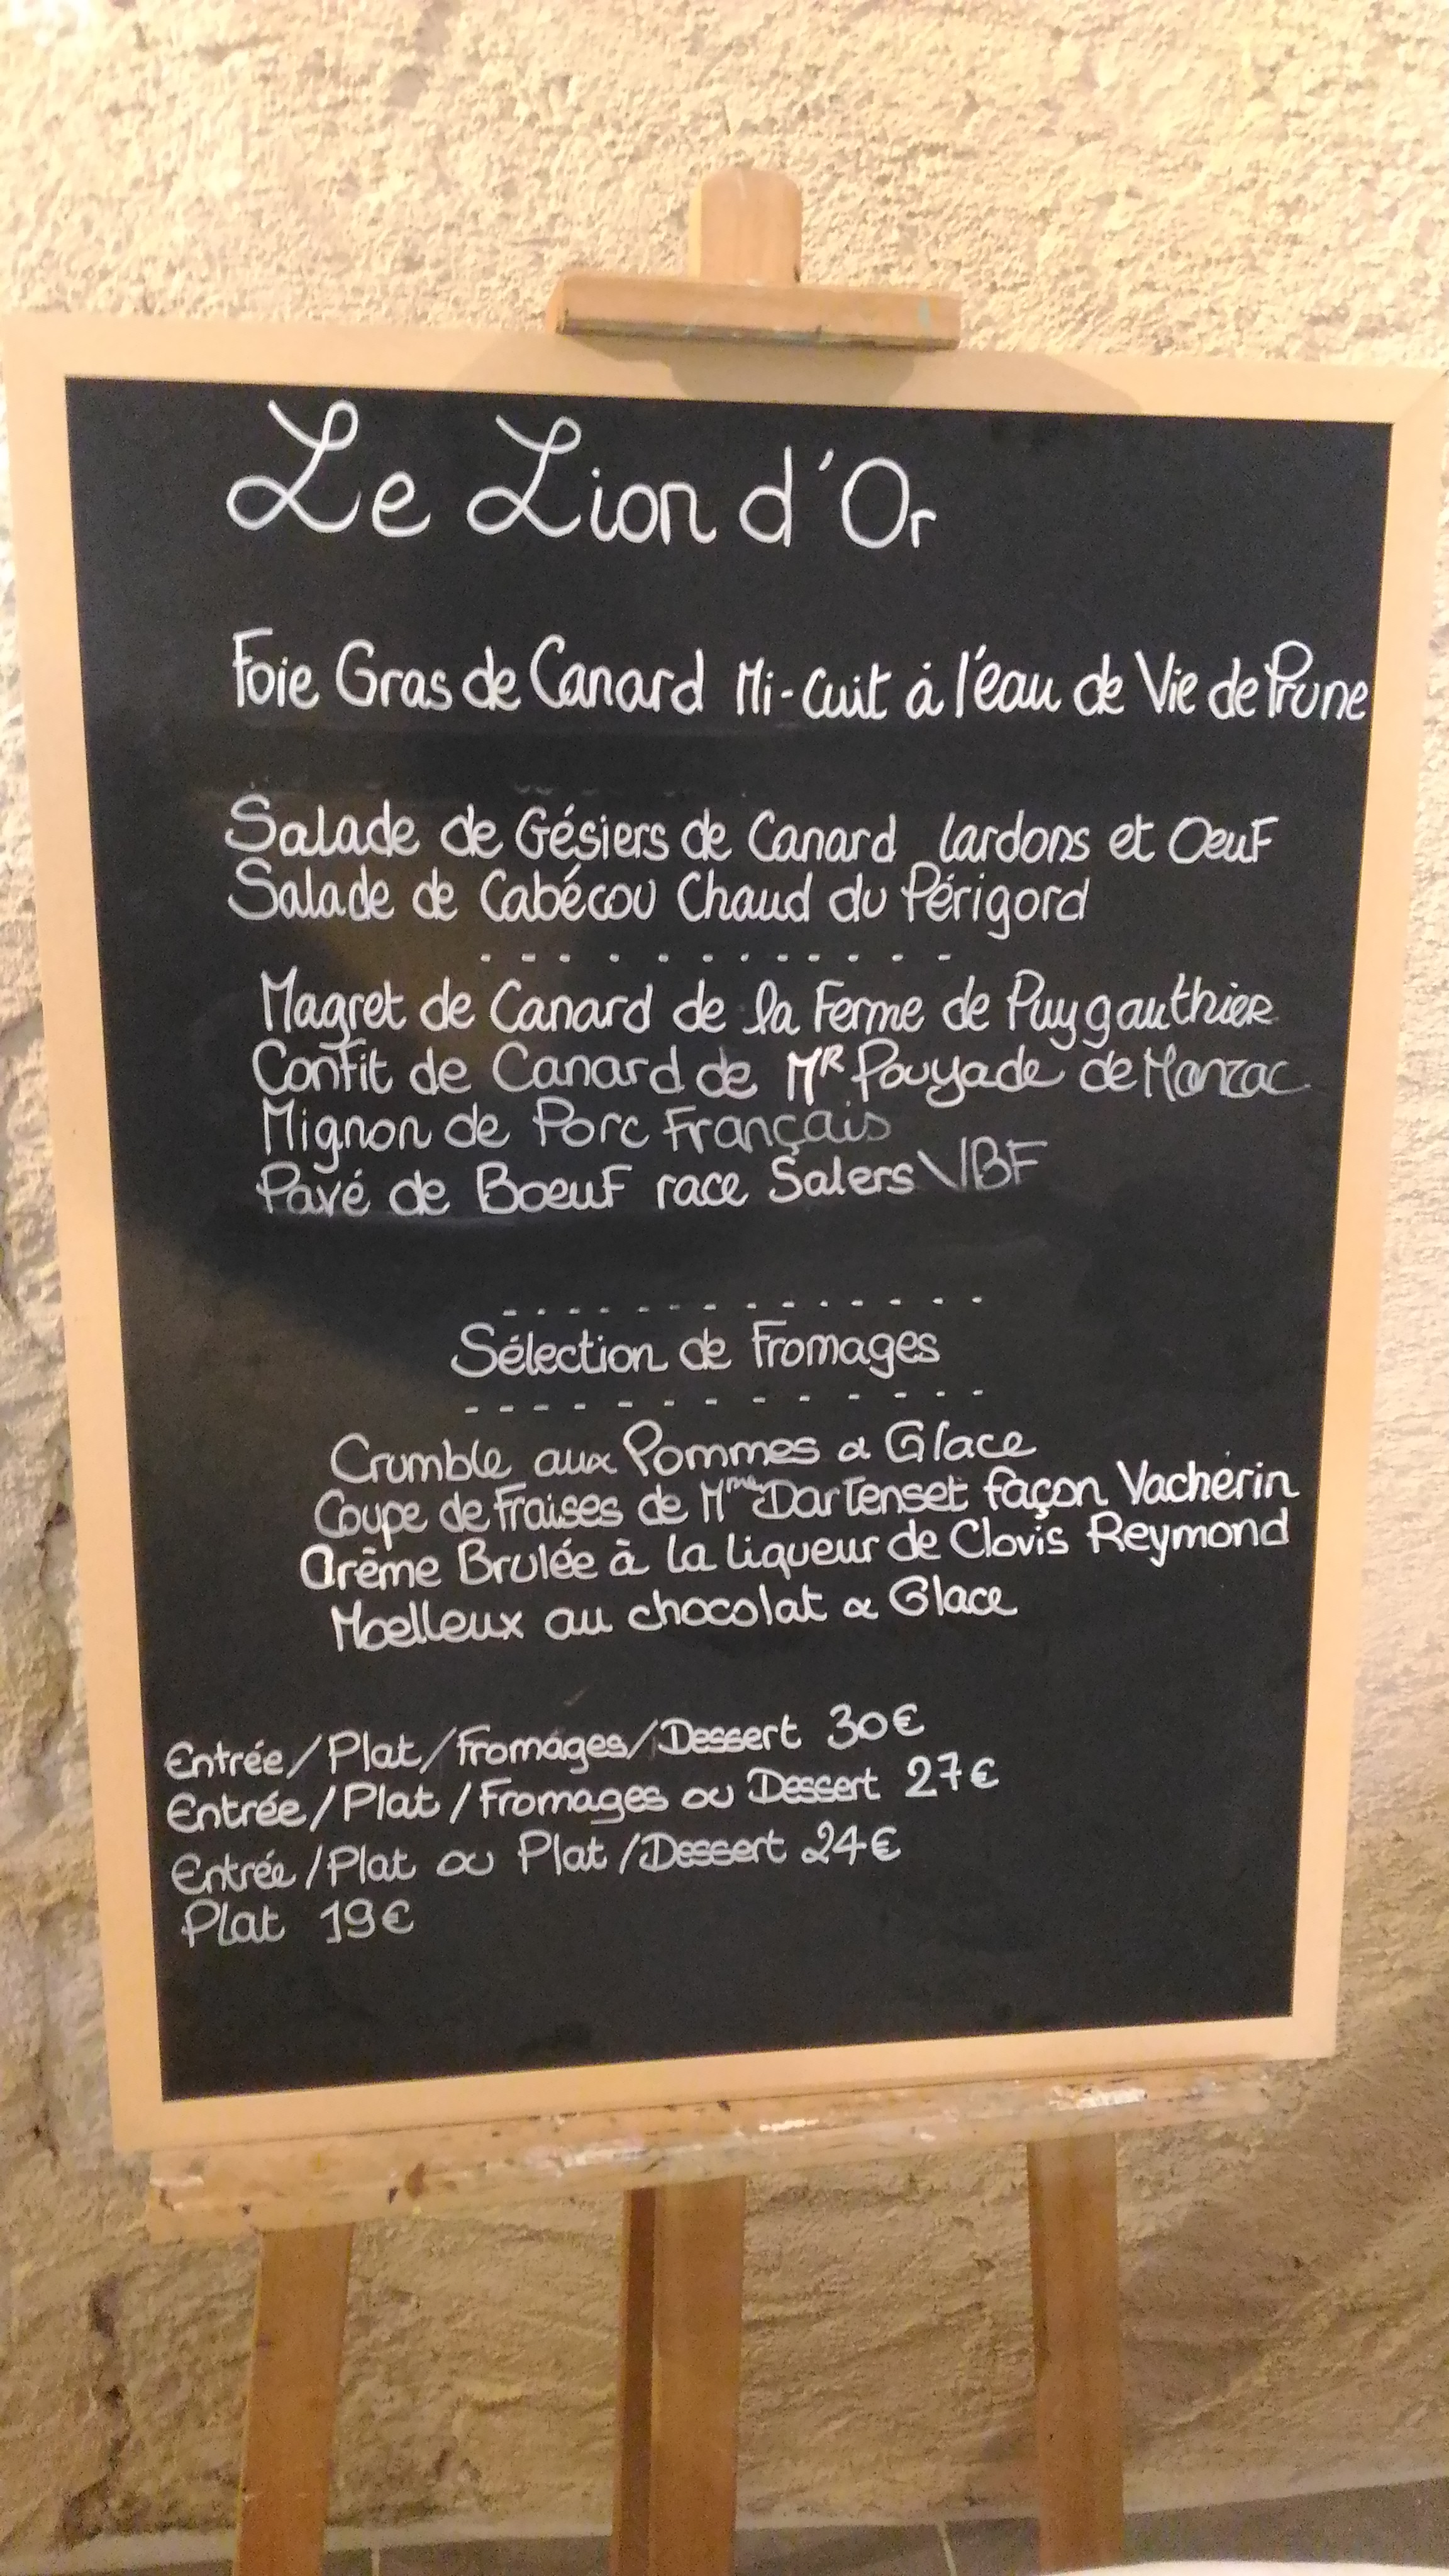 Le Lion d'Or
Foie Gras de Canard Mi-Cuit à l'éau de Vie de Prune
Salade de Gésiers de Canard lardons et OeuF
Salade de Cabécou Chaud du Périgord
Magret de Canard de la Ferme de Puygauthier
Confit de Canard de MR Pouyade de Manzac
Mignon de Porc Français
Pavé de BoeuF race Salers VBF
Sélection de Fromages
Crumble aux Pommes & Glace
Coupe de Fraises de Mme Dartenset façon Vacherin
Crème Brulée à la liqueur de Clovis Reymond
Moelleux au chocolat & Glace
Entrée/Plat/Fromages/Dessert 30€
Entrée/Plat/Fromages ou Dessert 27€
Entrée/Plat ou Plat/Dessert 24€
Plat 19€